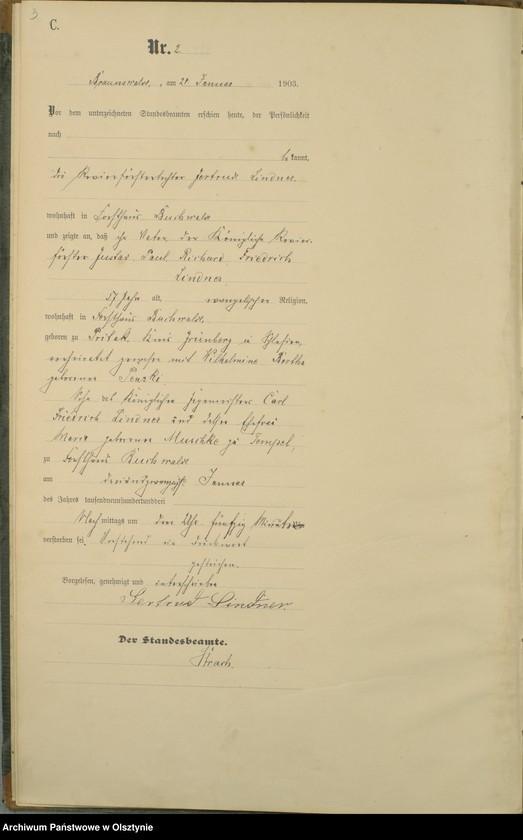 3
C.
Nr. 2
Braunswalde, am 24. Januar 1903.
Vor dem unterzeichneten Standesbeamten erschien heute, der Persönlichkeit
nach
bekannt,
die Revierförstertochter Gertrud Lindner
wohnhaft in Forsthaus Buchwalde
und zeigte an, daß ihr Vater der Königliche Revier-
förster Gustav Paul Richard Friedrich
Lindner,
57 Jahre alt, evangelischer Religion,
wohnhaft in Forsthaus Buchwalde,
geboren zu Kreis Grünberg in Schlesien,
verheiratet gewesen mit Wilhelmine Bertha
geborenen
Sohn des Königlichen Hegemeisters Carl
Friedrich Lindner und dessen Ehefrau
Maria geborenen Muschke zu Tempel,
zu Forsthaus Buchwalde
am dreiundzwanzigsten Januar
des Jahres tausendneunhundertunddrei
Nachmittags um drei Uhr fünfzig Minuten
verstorben sei. Vorstehend ein Druckwort
gestrichen.
Vorgelesen, genehmigt und unterschrieben
Gertrud Lindner.
Der Standesbeamte.
Archiwum Państwowe w Olsztynie